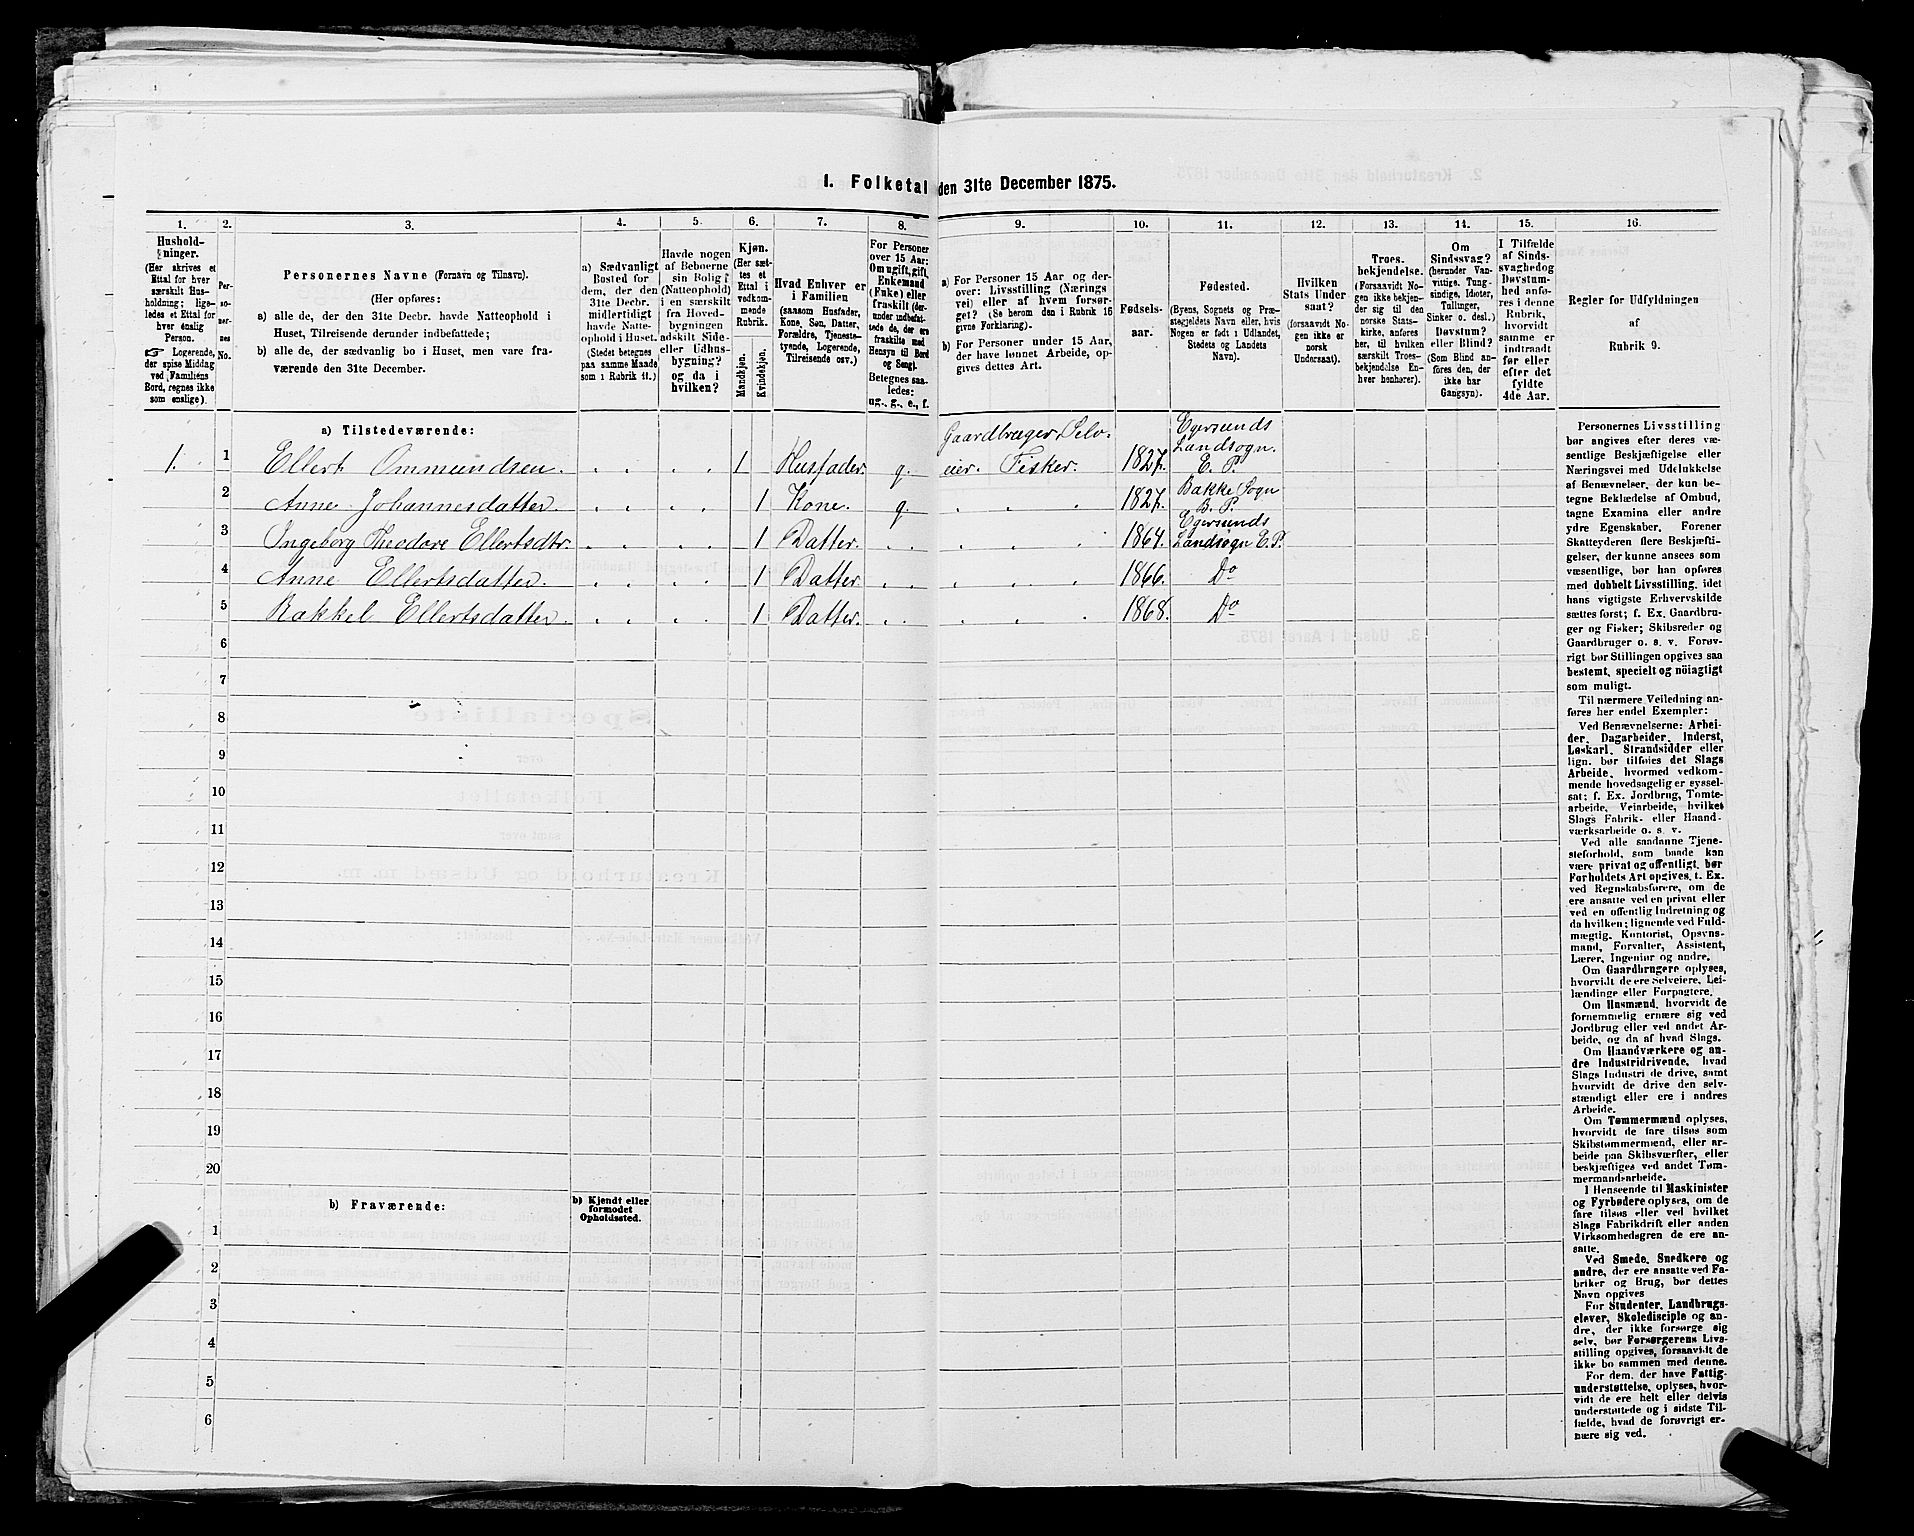 1. Folketal den 31te December 1875.
1. 2. 3. 4. 5. 6. 7. 8. 9. 10. 11. 12. 13. 14. 15. 16.
Hushold-
ninger.
(Her skrives et
Ettal for hver
særskilt Hus-
holdning; lige-
ledes et Ettal for
hver enslig
Person.
☞ Logerende,
der spise Middag
ved Familiens
Bord, regnes ikke
som enslige).
Per-
so-
ner-
nes
No.
Personernes Navne (Fornavn og Tilnavn).
(Her opføres:
a) alle de, der den 31te Decbr. havde Natteophold i
Huset, Tilreisende derunder indbefattede;
b) alle de, der sædvanlig bo i Huset, men vare fra-
værende den 31te December.
a) Sædvanligt
Bosted for
dem, der den
31te Decbr.
midlertidigt
havde Natte-
ophold i Huset.
(Stedet betegnes
paa samme Maade
som i Rubrik 11.)
Havde nogen
af Beboerne
sin Bolig
(Natteophold)
i en særskilt
fra Hoved-
bygningen
adskilt Side-
eller Udhus-
bygning?
og da i
hvilken?
Kjøn.
(Her sæt-
tes et
Ettal i
vedkom-
mende
Rubrik.
Mandkjøn.
Kvindekjøn.
Hvad Enhver er
i Familien
(saasom Husfader,
Kone, Søn, Datter,
Forældre, Tjeneste-
tyende, Logerende,
Tilreisende osv.)
For Personer
over 15 Aar:
Om ugift, gift,
Enkemand
(Enke) eller
fraskilt (der-
under indbefat-
tede de, der ere
fraskilte med
Hensyn til Bord
og Seng).
Betegnes saa-
ledes:
ug., g., e., f.
a) For Personer 15 Aar og der-
over: Livsstilling (Nærings
vei) eller af hvem forsør-
get? (Se herom den i Rubrik 16
givne Forklaring).
b) For Personer under 15 Aar,
der have lønnet Arbeide, op-
gives dettes Art.
Fødsels-
aar.
Fødested.
(Byens, Sognets og Præ-
stegjeldets Navn eller, hvis
Nogen er født i Udlandet,
Stedets og Landets
Navn).
Hvilken
Stats Under
saat?
(forsaavidt No-
gen ikke er
norsk
Undersaat).
Troes-
bekjendelse.
(Forsaavidt No-
gen ikke bekjen-
der sig til den
norske Stats-
kirke, anføres
her, til hvilken
særskilt Troes-
bekjendelse En-
hver henhører).
Om
Sindssvag?
(herunder Van-
vittige, Tung-
sindige, Idioter,
Tullinger,
Sinker o. desl.)
Døvstum?
eller Blind?
(Som Blind an-
føres den, der
ikke har
Gangsyn).
I Tilfælde
af Sinds-
svaghed og
Døvstum-
hed anfø-
res i denne
Rubrik,
hvorvidt
samme er
indtraadt
før eller
efter det
fyldte
4de Aar.
Regler for Udfyldningen
af
Rubrik 9.
a) Tilstedeværende:
1. 1 Ellert Ommundsen. 1 Husfader. g. Gaardbruger, Selv-
eier. Fisker. 1827. Egersunds
Landsogn.
E. P.
2 Anne Johannesdatter. 1 Kone. g. 1827. Bakke Sogn
B. P.
3 Ingeborg Theodore Ellertsdtr. 1 Datter. 1864. Egersunds
Landsogn E.P.
4 Anne Ellertsdatter. 1 Datter. 1866. Do
5 Rakkel Ellertsdatter. 1 Datter. 1868. Do
6
7
8
9
10
11
12
13
14
15
16
17
18
19
20
b) Fraværende:
b) Kjendt eller
formodet
Opholdssted.
1
2
3
4
5
6
Personernes Livsstilling
bør angives efter deres væ-
sentlige Beskjæftigelse eller
Næringsvei med Udelukkelse
af Benævnelser, der kun be-
tegne Beklædelse af Ombud,
tagne Examina eller andre
ydre Egenskaber. Forener
Skatteyderen flere Beskjæfti-
gelser, der kunne ansees som
væsentlige, bør han opføres
med dobbelt Livsstilling, idet
hans vigtigste Erhvervskilde
sættes først; f. Ex. Gaardbru-
ger og Fisker; Skibsreder og
Gaardbruger o. s. v. Forøv-
rigt bør Stillingen opgives saa
bestemt, specielt og nöiagtigt
som muligt.
Til nærmere Veiledning an-
føres her endel Exempler:
Ved Benævnelserne: Arbei-
der, Dagarbeider, Inderst,
Løskarl, Strandsidder eller
lign. bør tilføies det Slags
Arbeide, hvormed vedkom-
mende hovedsagelig er syssel-
sat; f. Ex. Jordbrug, Tomte-
arbeide, Veiarbeide, hvilket
Slags Fabrik- eller Haand-
værksarbeide o. s. v.
Ved alle saadanne Tjene-
steforhold, som baade kan
være privat og offentligt, bør
Forholdets Art opgives, t. Ex.
ved Regnskabsførere, om de
ere ansatte ved en privat eller
ved en offentlig Indretning og
da hvilken; lignende ved Fuld-
mægtig, Kontorist, Opsyns-
mand, Forvalter, Assistent,
Lærer, Ingeniør og andre.
Om Gaardbrugere oplyses,
hvorvidt de ere Selveiere, Lei-
lændinge eller Forpagtere.
Om Husmænd, hvorvidt de
fornemmelig ernære sig ved
Jordbrug eller ved andet Ar-
beide, og da af hvad Slags.
Om Haandværkere og an-
dre Industridrivende, hvad
Slags Industri de drive, samt
hvorvidt de drive den selv-
stændigt eller ere i andres
Arbeide.
Om Tømmermænd oplyses,
hvorvidt de fare tilsøs som
Skibstømmermænd, eller ar-
beide paa Skibsværfter, eller
beskjæftiges ved andet Tøm-
mermandsarbeide.
I Henseende til Maskinister
og Fyrbødere oplyses, om de
fare tilsøs eller ved hvilket
Slags Fabrikdrift eller anden
Virksomhedsgren de ere an-
satte.
Ved Smede, Snedkere og
andre, der ere ansatte ved Fa-
briker og Brug, bør dettes
Navn opgives
For Studenter, Landbrugs-
elever, Skoledisciple og an-
dre, der ikke forsørge sig
selv, bør Forsørgerens Livs-
stilling opgives, forsaavidt de
ikke bo sammen med denne.
For dem, der have Fattig-
understøttelse, oplyses, hvor-
vidt de ere helt eller delvis
understøttede og i sidste Til-
fælde, hvad de forøvrigt er-
nære sig ved.